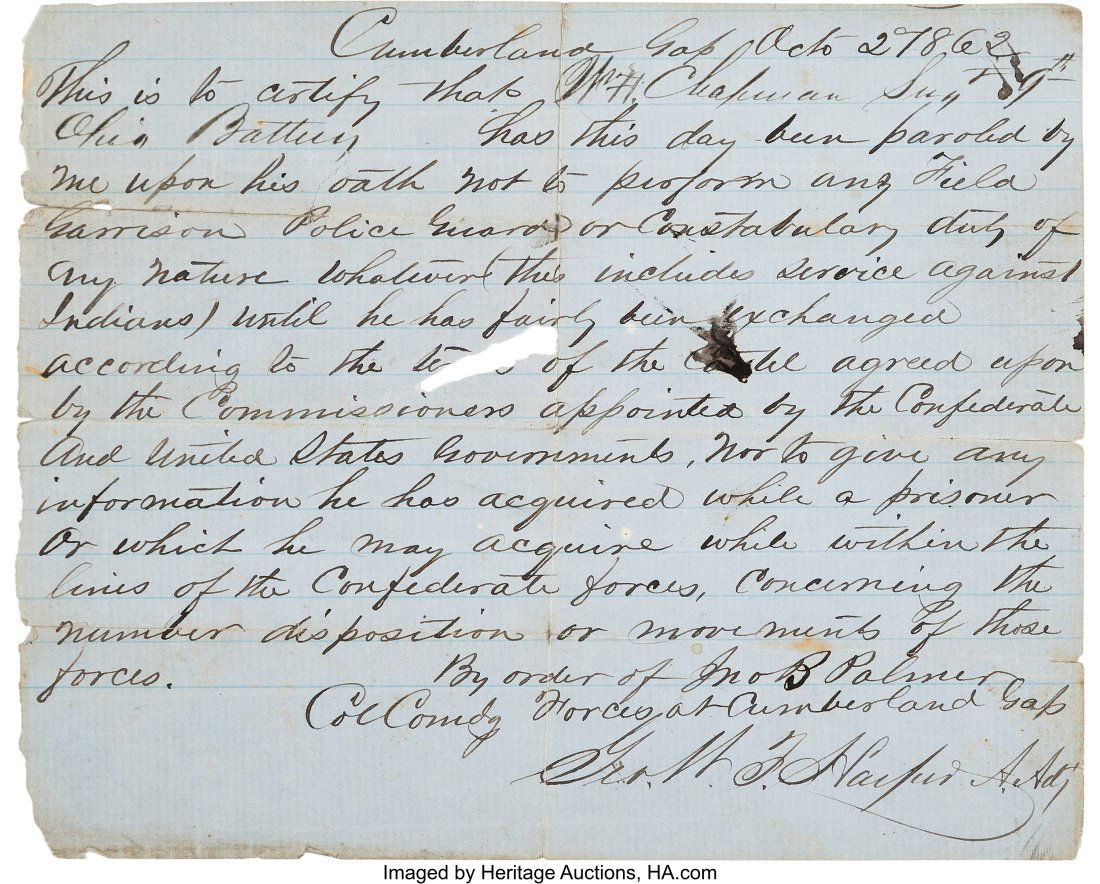 Cumberland Gap Octo 27 8,62
This is to certify that Wm H Chapman 9th
Ohio Battery has this day been paroled by
me upon his oath not to perform any Field
Garrison Police Guard or Constabulary duty of
any nature whatever (this includes service against
Indians) until he has fairly been exchanged
according to the of the agreed upon
by the Commissioners appointed by the Confederate
And United States Governments, Nor to give any
information he has acquired while a prisoner
Or which he may acquire while within the
lines of the Confederate forces, concerning the
number disposition or movements of those
forces. By order of Jno B Palmer
Col Comdg Forces at Cumberland Gap
Geo. W. F. Harper A. Adj
Imaged by Heritage Auctions, HA.com